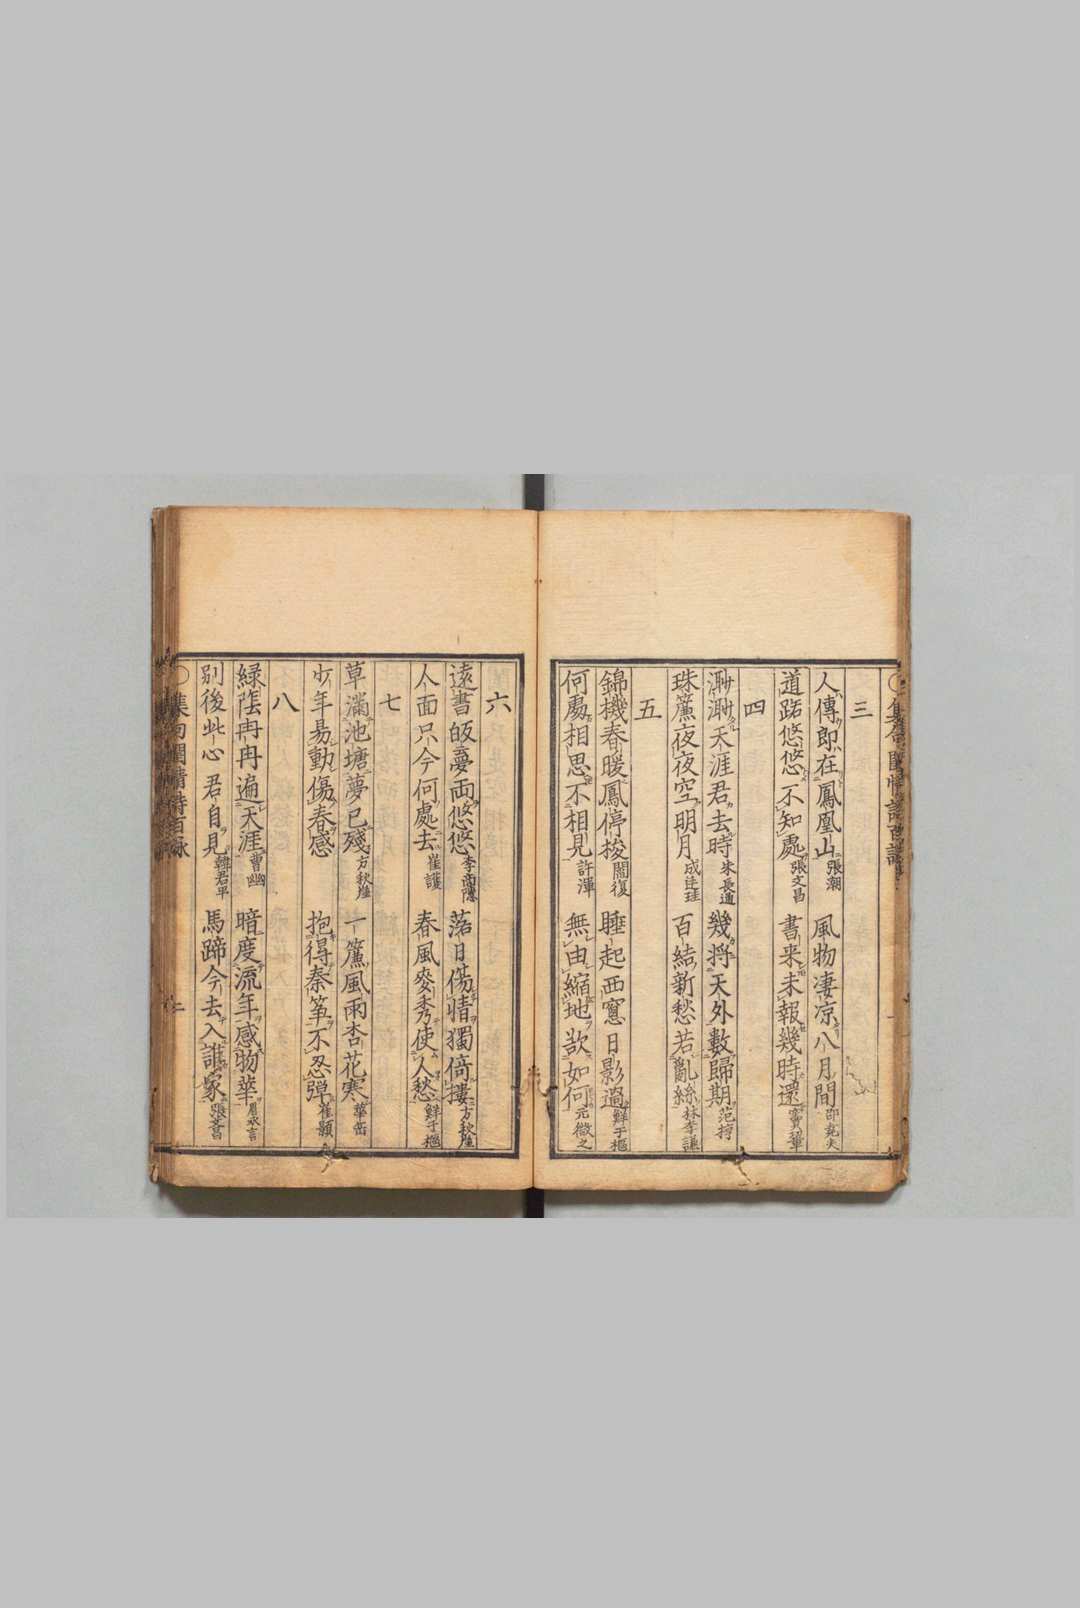 三
人傳郎在鳳凰山 張潮 風物凄涼八月間 邵堯夫
道路悠悠不知處 張文昌 書来未報幾時還 竇鞏
四
漸漸天涯君去時 朱長通 幾将天外數歸期 范梈
珠簾夜夜空明月 成廷珪 百結新愁若亂絲 林李謙
五
錦機春暖鳳停梭 關復 睡起西窓日影過 鮮于樞
何處相思不相見 許渾 無由縮地欲如何 元微之
六
遠書皈夢両悠悠 李商隠 落日傷情獨倚摟 方秋崖
人面只今何處去 崔護 春風麥秀使人愁 鮮于樞
七
草滿池塘夢已殘 方秋崖 一簾風雨杏花寒 華岳
少年易動傷春感 抱得秦筝不忍彈 崔顥
八
緑陰冉冉遍天涯 曹豳 暗度流年感物華
別後此心君自見 韓君平 馬蹄今去入誰家 張籍
集句閨情詩百咏